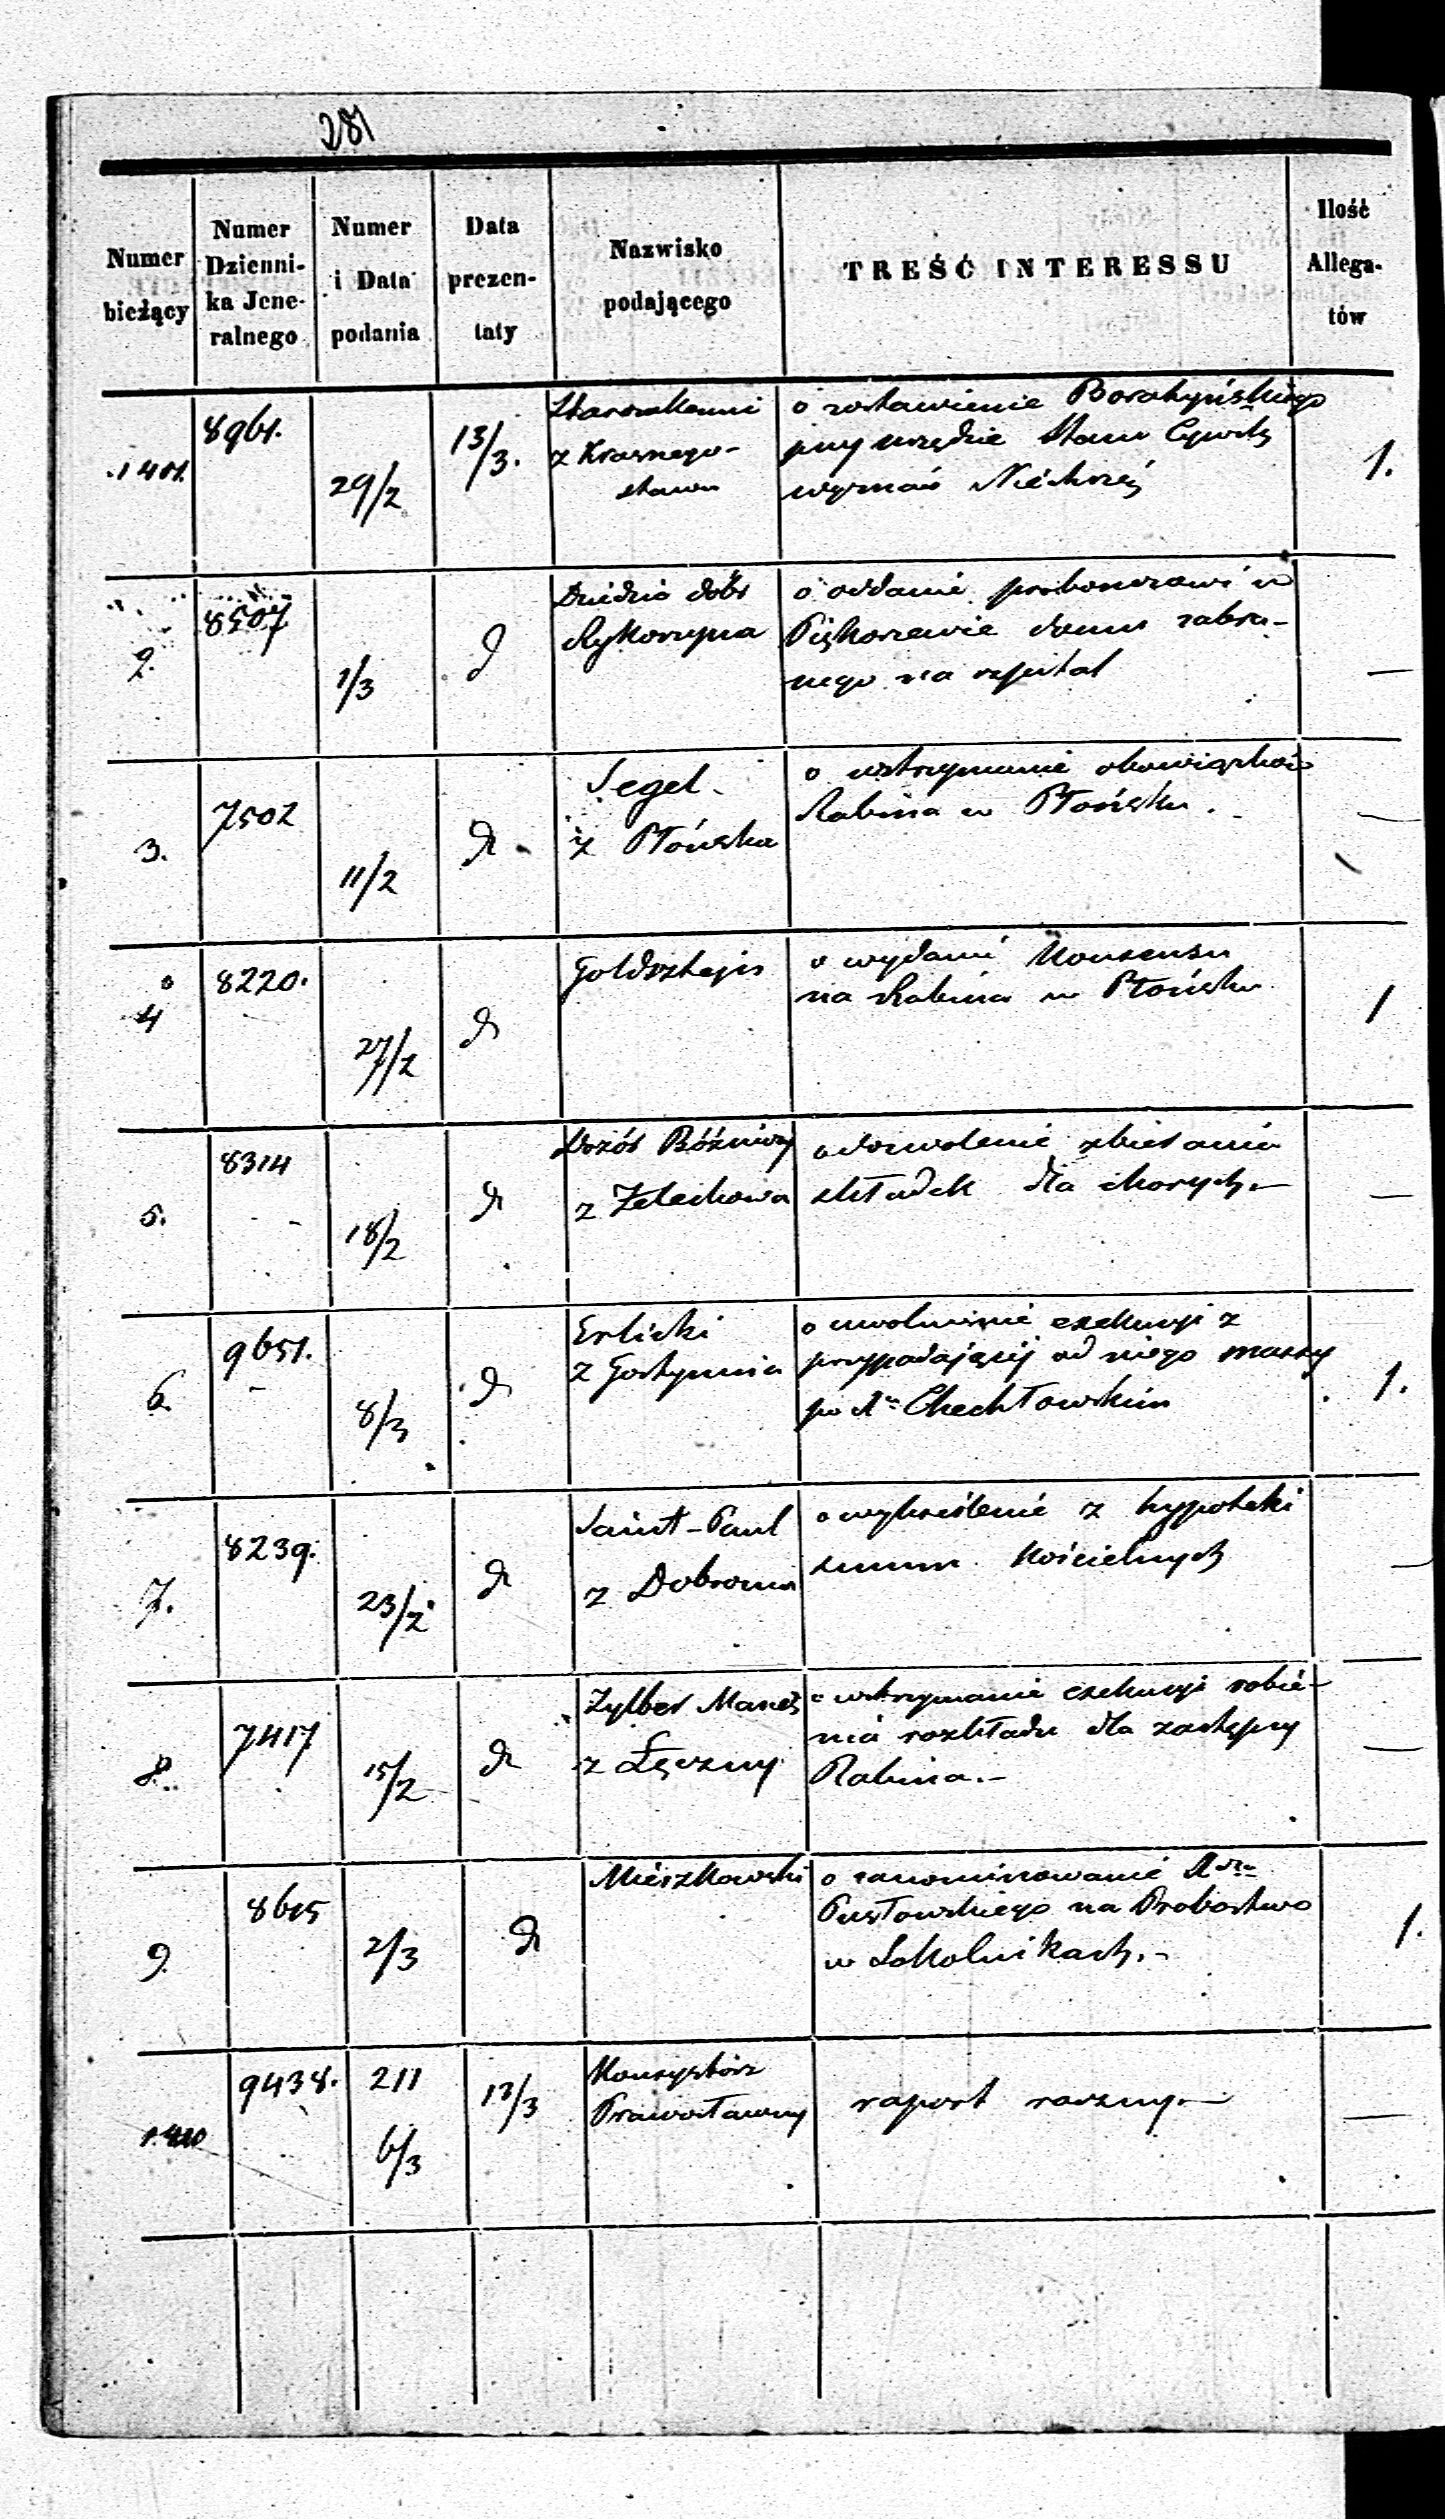 281
Numer bieżący
Numer Dzienni- ka Jene- ralnego
Numer i Data podania
Data prezen- taty
Nazwisko podającego
TREŚĆ INTERESSU
Ilość Allega- tów
1401.
8961.
29/2
13/3.
z Krasnego-
stawu
o zostawienie Boratyńskiego
przy urzędzie Stanu Cywil
wyznań Niechrześ
1.
2.
8507
1/3
d
Dziedzic dóbr
o oddanie proboszczowi w
Piskorzewie domu zabra-
nego na szpital
—
3.
7502
11/2
d
Segel
z Płońska
o wstrzymanie obowiązków
Rabina w Płońsku.
—
4
8220.
27/2
d
Goldsztejn
o wydanie Konsensu
na Rabina w Płońsku
1
5.
8314
18/2
d
Dozór Bóźniczy
z Żelechowa
o dozwolenie zbierania
składek dla chorych.—
—
6.
9651.
8/3
d
Erlicki
z Gostynina
o uwolnienie exekucyi z
przypadającej od niego massy
po Chechłowskim
1.
7.
8239.
23/2
d
Saint-Paul
z Dobrowa
o wykreślenie z hypoteki
summ Kościelnych
—
8.
7417
15/2
d
Zylber Manes
z Łęczny
o wstrzymanie exekucyi robie-
nia rozkładu dla zastępcy
Rabina.—
—
9
8615
2/3
d
Mieszkowski
o zanominowanie
Pusłowskiego na Probostwo
w Sokolnikach.—
1.
1410
9438.
211
6/3
13/3
Konsystorz
Prawosławny
raport roczny.—
—